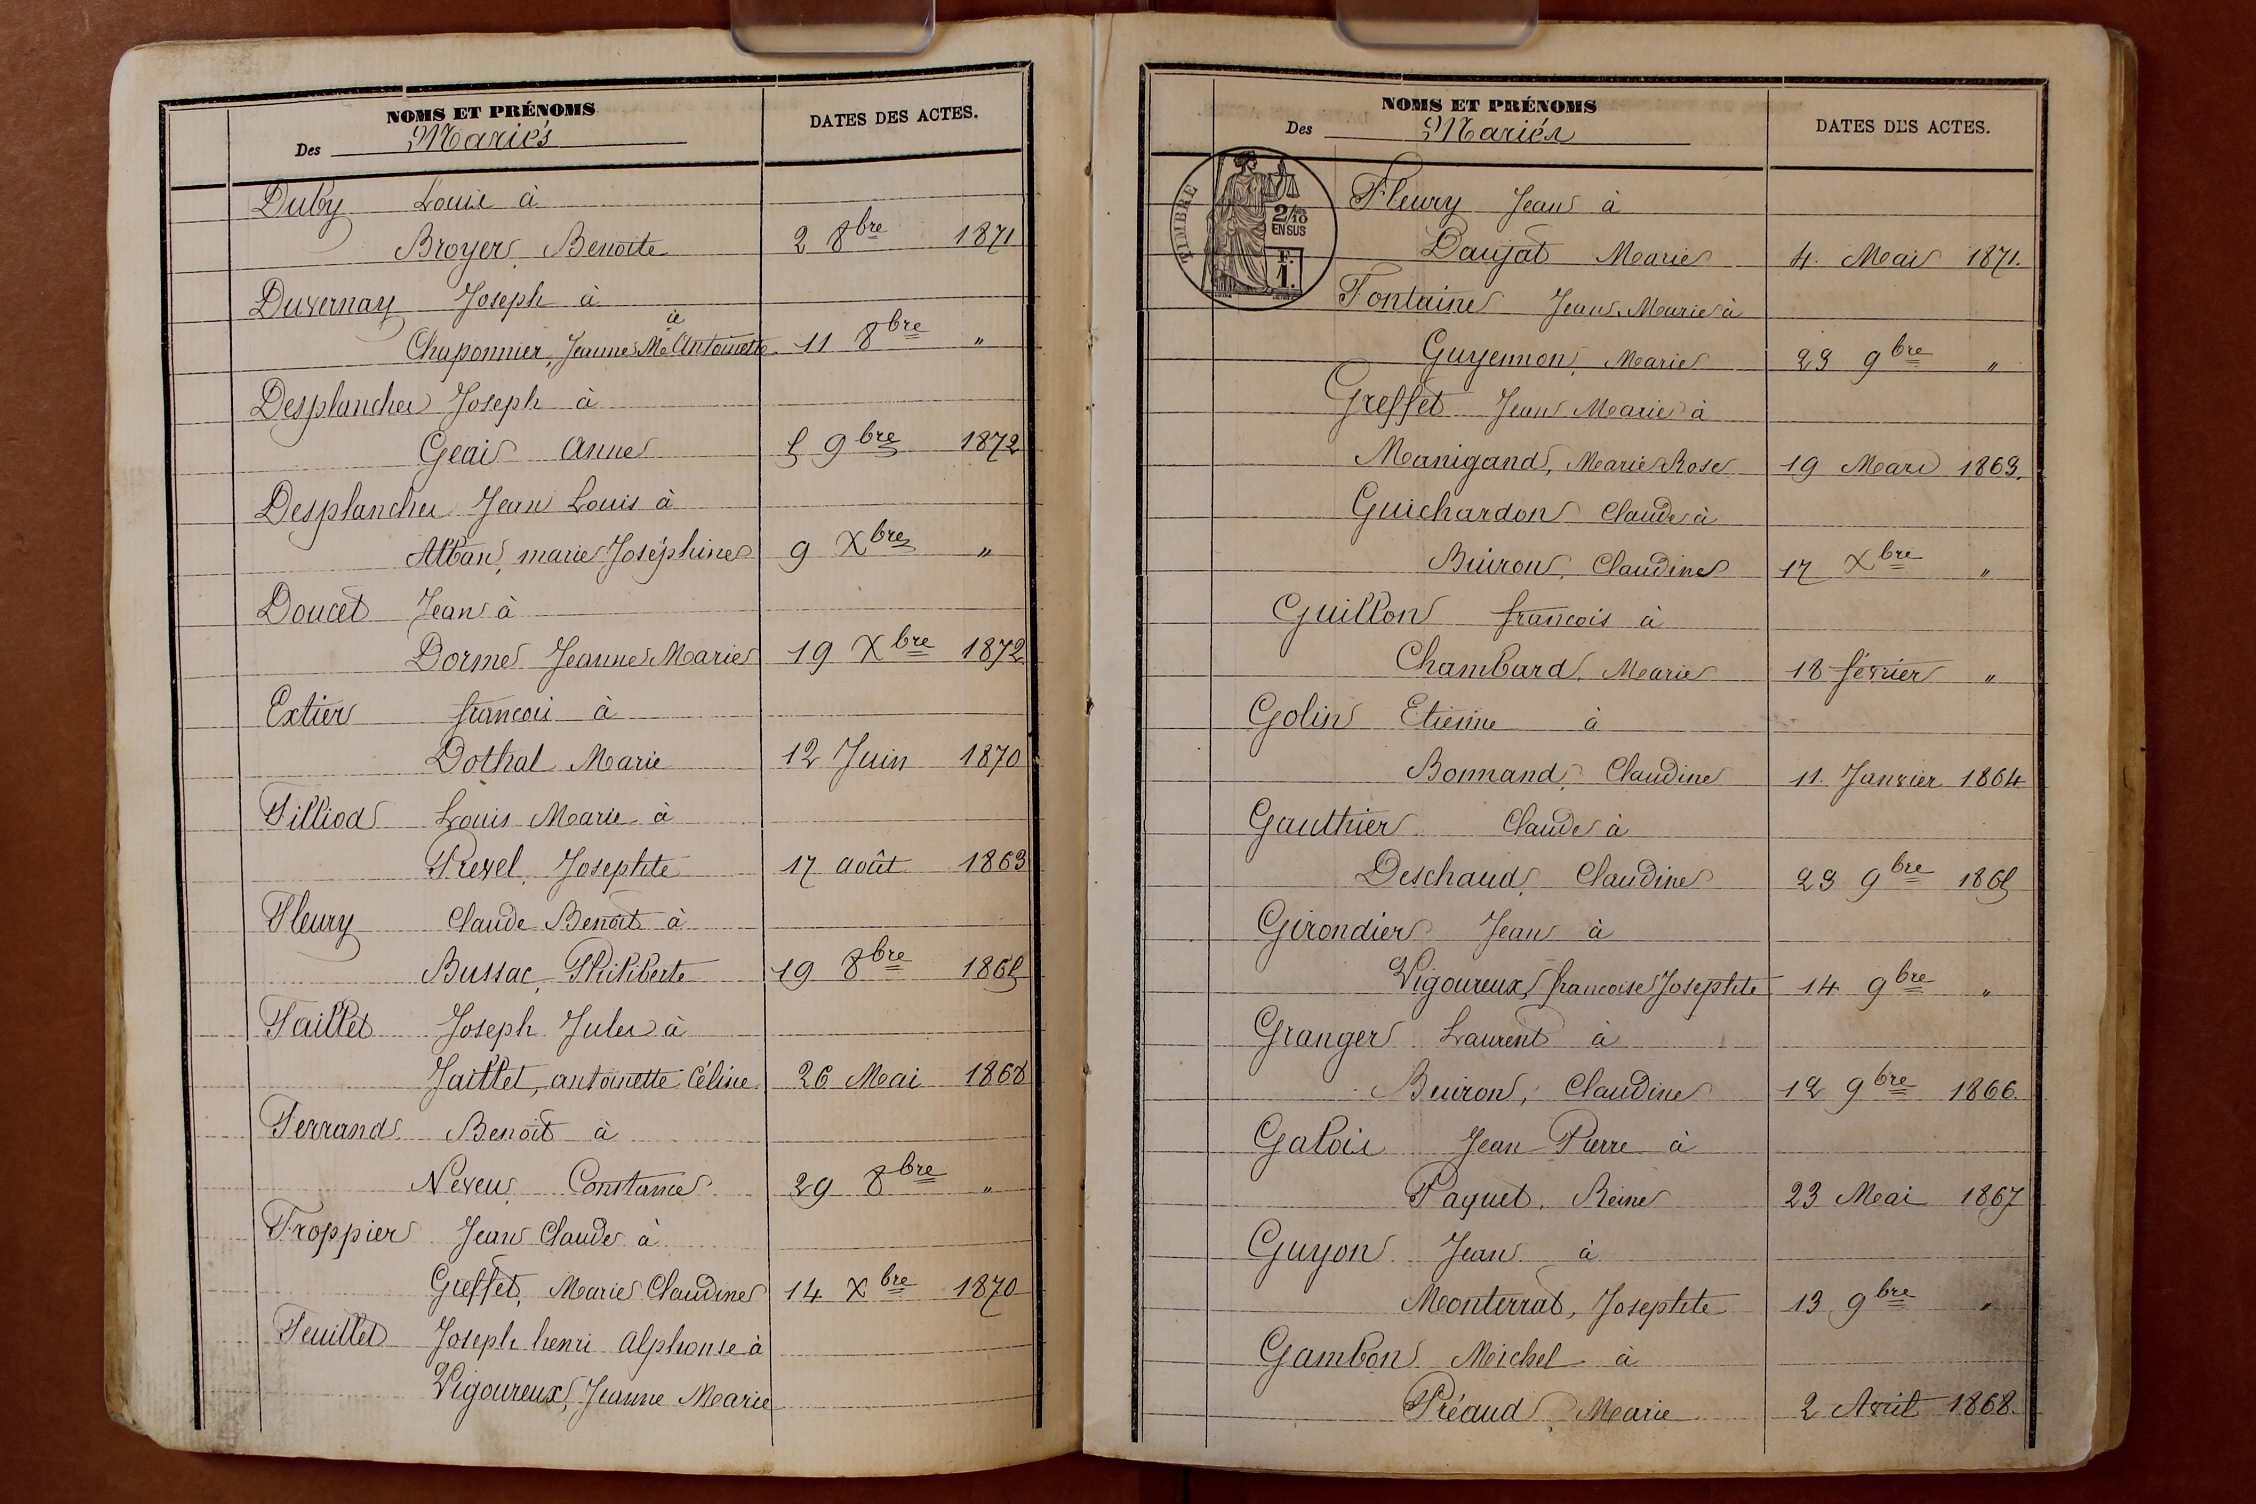 NOMS ET PRÉNOMS
Des Mariés
DATES DES ACTES.
Duby Louis à
Broyer, Benoite 2 8bre 1871
Duvernay Joseph à
Chaponnier, Jeanne Mie Antoinette 11 8bre "
Desplanches Joseph à
Geai Anne 5 9bre 1872
Desplanches Jean Louis à
Alban, marie Joséphine 9 Xbre "
Doucet Jean à
Dorme Jeanne Marie 19 Xbre 1872
Extier françois à
Dothal Marie 12 Juin 1870
Filliod Louis Marie à
Prevel, Josephte 17 août 1863
Fleury Claude Benoit à
Bussac, Philiberte 19 8bre 1865
Faillet Joseph Jules à
Jaillet, antoinette Céline 26 Mai 1868
Ferrand Benoît à
Neveu, Constance 29 8bre "
Froppier Jean Claude à
Greffet, Marie Claudine 14 Xbre 1870
Feuillet Joseph henri Alphonse à
Vigoureux, Jeanne Marie
NOMS ET PRÉNOMS
Des Mariés
DATES DES ACTES.
TIMBRE
2/10
EN SUS
F.
1.
Fleury Jean à
Daujat Marie 4. Mai 1871.
Fontaine Jean Marie à
Guyennon, Marie 23 9bre "
Greffet Jean Marie à
Manigand, Marie Rose 19 Mars 1863.
Guichardon Claude à
Buiron, Claudine 17 Xbre "
Guillon françois à
Chambard, Marie 18 février "
Golin Etienne à
Bonnand, Claudine 11. Janvier 1864
Gauthier Claude à
Deschaud, Claudine 23 9bre 1865
Girondier Jean à
Vigoureux, françoise Josephte 14 9bre "
Granger Laurent à
Buiron, Claudine 12 9bre 1866.
Galois Jean Pierre à
Paquet. Reine 23 Mai 1867
Guyon Jean à
Monterrat, Josephte 13 9bre "
Gambon Michel à
Préaud, Marie 2 Avril 1868.